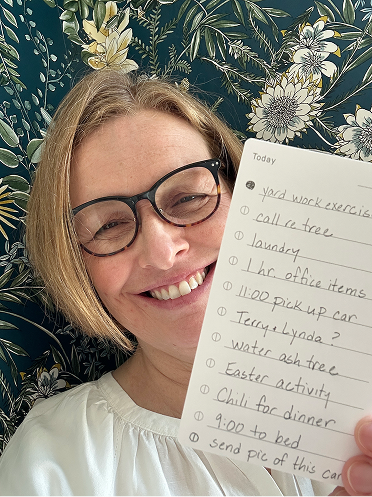 Today
yard work exercis
call re tree
laundry
1 hr office items
11:00 pick up car
Terry + Lynda ?
water ash tree
Easter activity
Chili for dinner
9:00 to bed
send pic of this car